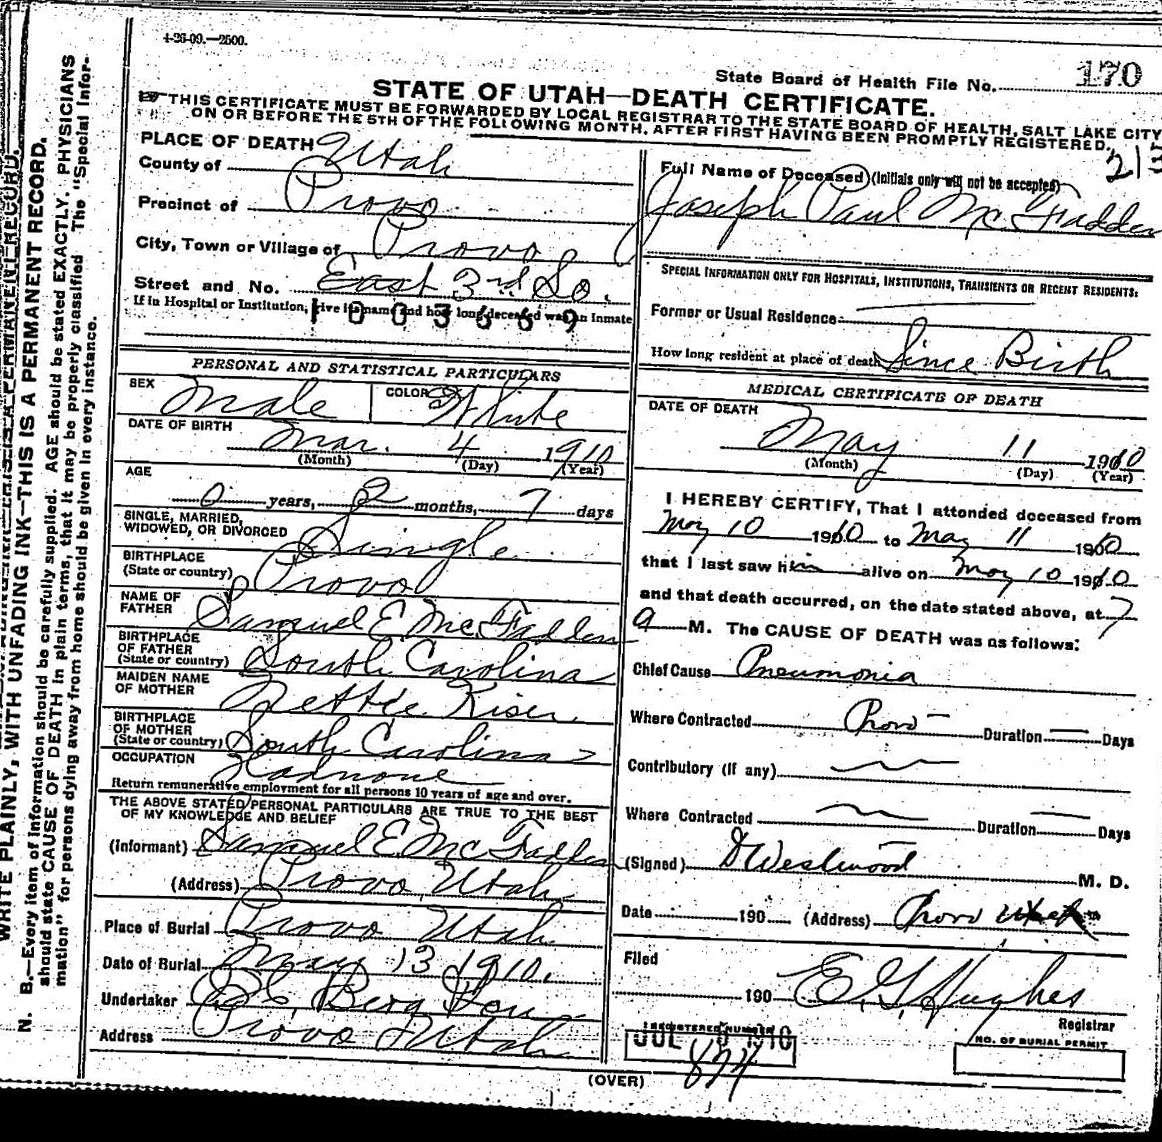 4-26-09.—2500.
State Board of Health File No. 170
STATE OF UTAH—DEATH CERTIFICATE.
THIS CERTIFICATE MUST BE FORWARDED BY LOCAL REGISTRAR TO THE STATE BOARD OF HEALTH, SALT LAKE CITY
ON OR BEFORE THE 5TH OF THE FOLLOWING MONTH, AFTER FIRST HAVING BEEN PROMPTLY REGISTERED.
PLACE OF DEATH
County of Utah
Precinct of Provo
City, Town or Village of Provo
Street and No. East 3rd So.
If in Hospital or Institution, give its name and how long deceased was an inmate
1003669
PERSONAL AND STATISTICAL PARTICULARS
SEX Male COLOR White
DATE OF BIRTH Mar. 4 1910
(Month) (Day) (Year)
AGE
0 years, 2 months, 7 days
SINGLE, MARRIED,
WIDOWED, OR DIVORCED Single
BIRTHPLACE
(State or country) Provo
NAME OF
FATHER Samuel E McFadden
BIRTHPLACE
OF FATHER
(State or country) South Carolina
MAIDEN NAME
OF MOTHER Nettie Kiser
BIRTHPLACE
OF MOTHER
(State or country) South Carolina
OCCUPATION Had none
Return remunerative employment for all persons 10 years of age and over.
THE ABOVE STATED PERSONAL PARTICULARS ARE TRUE TO THE BEST
OF MY KNOWLEDGE AND BELIEF
(Informant) Samuel E McFadden
(Address) Provo Utah
Place of Burial Provo Utah
Date of Burial May 13 1910.
Undertaker Berg
Address Provo Utah
Full Name of Deceased (Initials only will not be accepted)
Joseph Paul McFadden
SPECIAL INFORMATION ONLY FOR HOSPITALS, INSTITUTIONS, TRANSIENTS OR RECENT RESIDENTS:
Former or Usual Residence
How long resident at place of death Since Birth
MEDICAL CERTIFICATE OF DEATH
DATE OF DEATH
May 11 1910
(Month) (Day) (Year)
I HEREBY CERTIFY, That I attonded deceased from
May 10 1910 to May 11 1910
that I last saw him alive on May 10 1910
and that death occurred, on the date stated above, at 7
a M. The CAUSE OF DEATH was as follows:
Chief Cause Pneumonia
Where Contracted Provo Duration Days
Contributory (if any)
Where Contracted Duration Days
(Signed) D Westwood M. D.
Date 190 (Address) Provo Utah
Filed
190 E. G. Hughes
Registrar
REGISTERED NUMBER
JUL 1910
874
NO. OF BURIAL PERMIT
(OVER)
WRITE PLAINLY, WITH UNFADING INK—THIS IS A PERMANENT RECORD.
N. B.—Every item of information should be carefully supplied. AGE should be stated EXACTLY. PHYSICIANS
should state CAUSE OF DEATH in plain terms, that it may be properly classified. The "Special Infor-
mation" for persons dying away from home should be given in every instance.